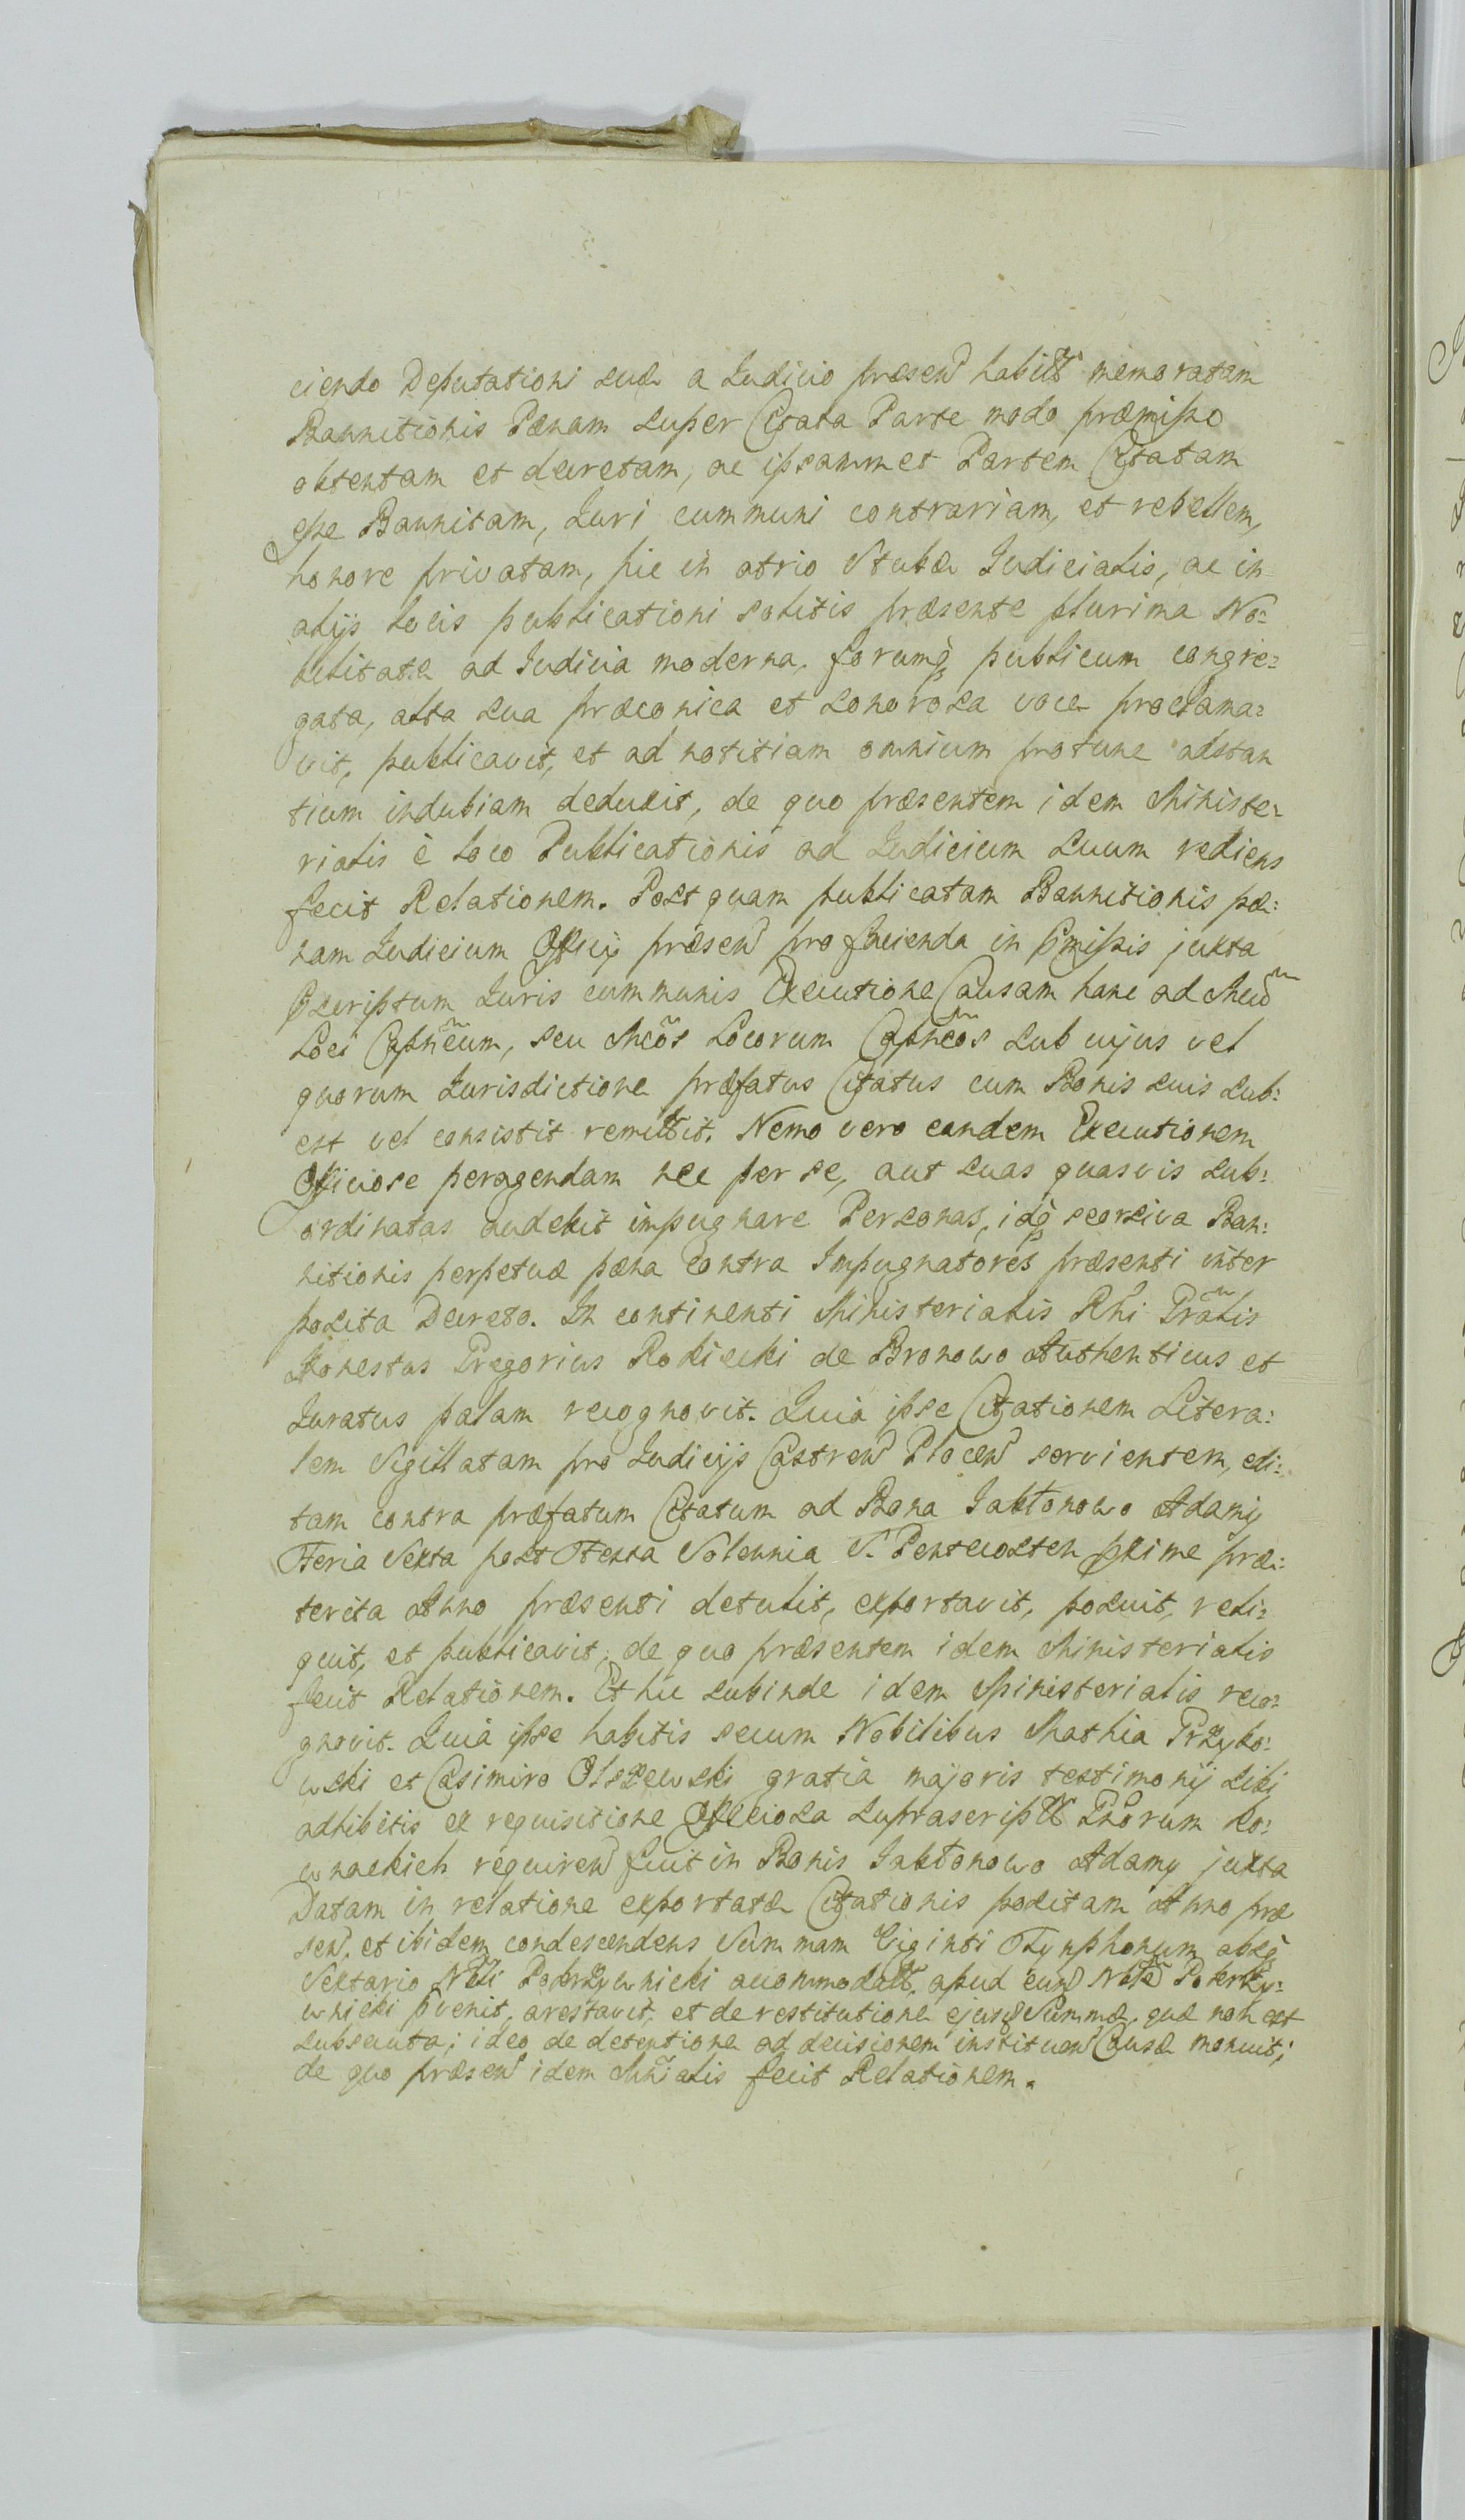 ciendo Deputationi suæ a Iudicio præsen habitt memoratam
Bannitionis Pænam super Citata Parte modo præmisso
obtentam et decretam, ac ipsammet Partem Citatam
esse Bannitam, Iuri communi contrariam, et rebellem,
honore privatam, hic in atrio Stubæ Iudicialis, ac in
alijs locis publicationi solitis præsente plurima No:
bilitate ad Iudicia moderna, forumq publicum congre:
gata, alta sua præconica et sonorosa voce proclama:
vit, publicavit, et ad notitiam omnium protunc adstan
tium indubiam deduxit, de quo præsentem idem Ministe:
rialis è loco Publicationis ad Iudicium suum rediens
fecit Relationem. Post quam publicatam Bannitionis pæ:
nam Iudicium Officij præsen pro facienda in pmissis juxta
pscriptum Iuris communis Executione Causam hanc ad Mcum
Loci Captneum, seu Mcos Locorum Captneos sub cujus vel
quorum Iurisdictione præfatus Citatus cum Bonis suis sub:
est vel consistit remittit. Nemo vero eandem Executionem
Officiose peragendam nec per se, aut suas quasvis sub:
ordinatas audebit impugnare Personas, idq seorsiva Ban:
nitionis perpetuæ pæna contra Impugnatores præsenti inter
posita Decreto. In continenti Ministerialis Rni Gralis
Honestus Gregorius Rokicki de Bronowo Authenticus et
Iuratus palam recognovit. Quia ipse Citationem Litera:
lem Sigillatam pro Iudicijs Castren Plocen servientem, edi:
tam contra præfatum Citatum ad Bona Jabłonowo Adamy
Feria Sexta post Festa Solennia S. Pentecosten pxime præ:
terita Anno præsenti detulit, exportavit, posuit, reli:
quit, et publicavit, de quo præsentem idem Ministerialis
fecit Relationem. Et hic subinde idem Ministerialis reco:
gnovit. Quia ipse habitis secum Nobilibus Mathia Przybo:
wski et Casimiro Olszewski gratia majoris testimonij sibi
adhibitis ex requisitione Officiosa suprascriptt Gnorum Ko:
wnackich requiren fuit in Bonis Jabłonowo Adamy juxta
Datam in relatione exportatæ Citationis positam Anno præ
sen, et ibidem condescendens Summam Viginti Tynphonum absq
Sextario Nbli Pokrzywnicki accommodatt, apud eund Nblē Pokrzy:
wnicki pvenit, arestavit, et de restitutione ejusd Summæ, quæ non est
subsecuta; ideo de detentione ad decisionem instituen Causæ monuit;
de quo præsen idem Mnialis fecit Relationem.